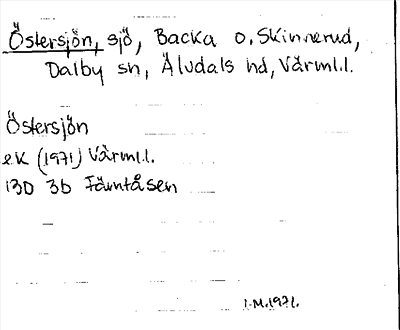 Östersjön, sjö, Backa o. Skinnerud,
Dalby sn, Äludals hd, Värml.l.
Östersjön
ek (1971) Värml.l.
13D 3b Fämtåsen
I.M.1971.